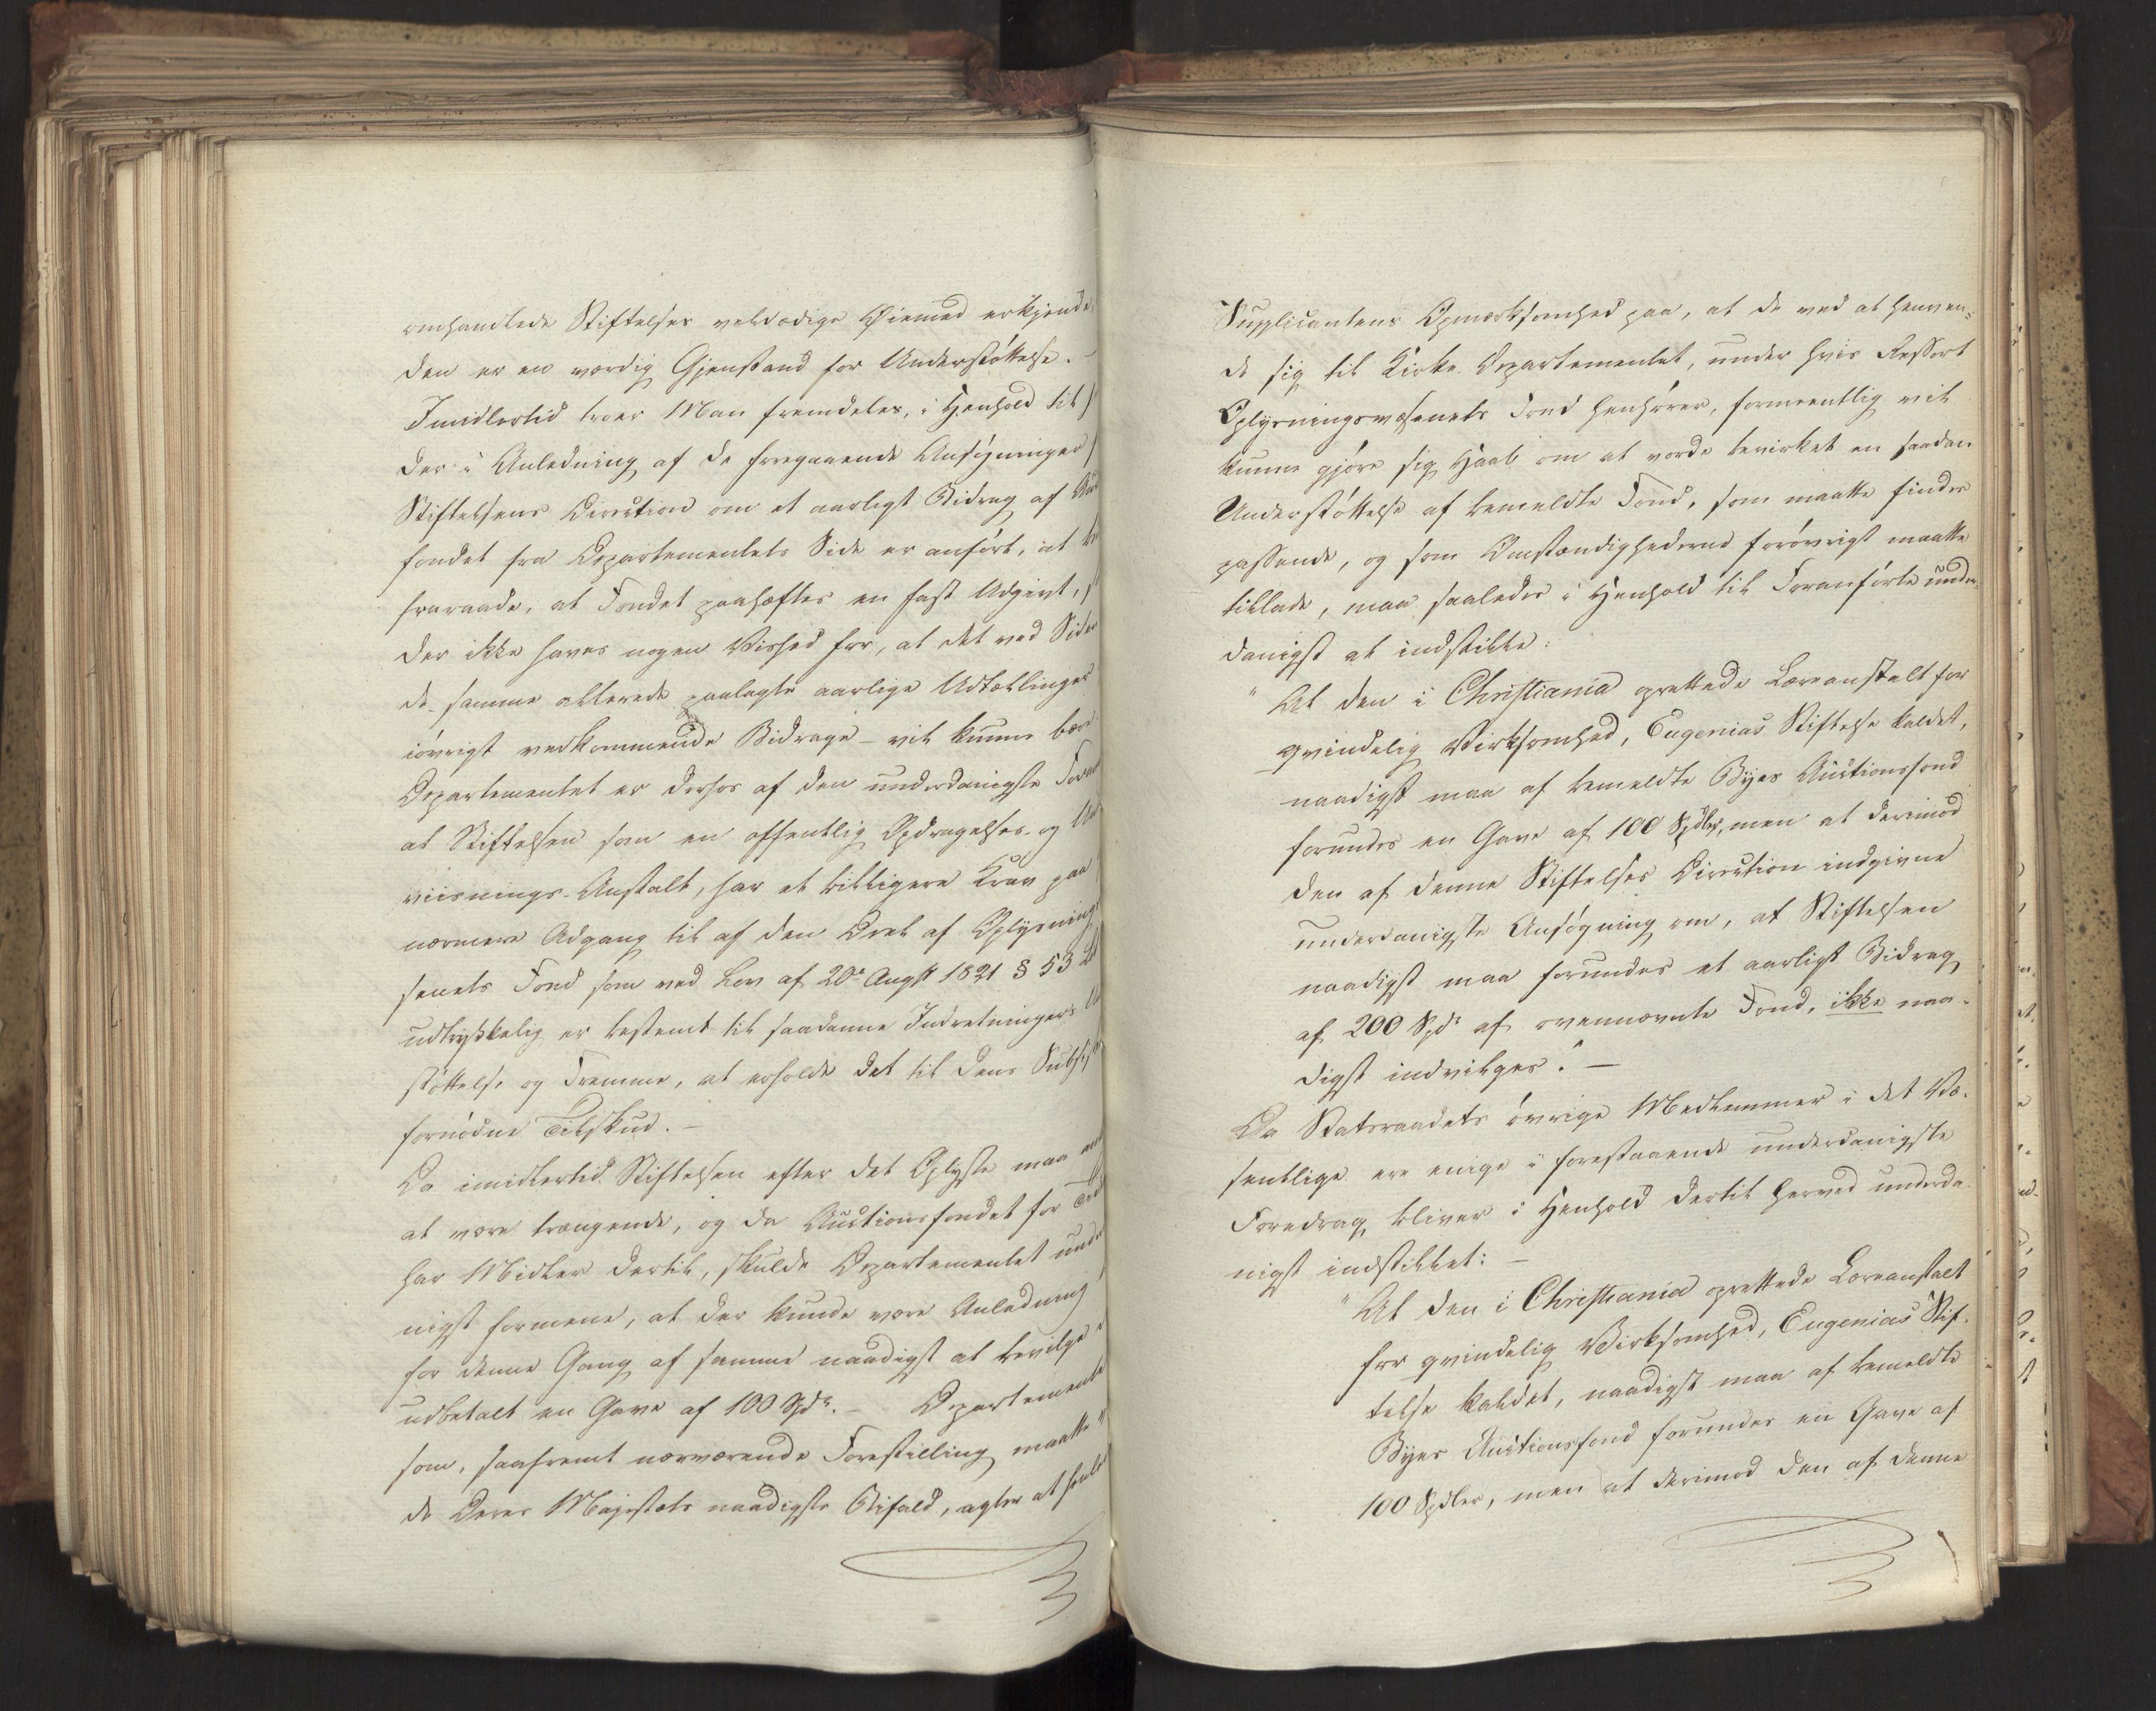 omhandlede Stiftelses veldædige Øiemed erkjendes
den er en værdig Gjenstand for Understøttelse. –
Imidlertid troer Man fremdeles, i Henhold til
der i Anledning af de foregaaende Ansøgninger
Stiftelsens Direction om et aarligt Bidrag af
fondet fra Departementets Side er anført, at
fraraade, at Fondet paahæftes en fast Udgivt,
der ikke haves nogen Vished for, at det ved Siden
de samme allerede paalagte aarlige Udtællinger
iøvrigt vedkommende Bidrage – vil kunne bære
Departementet er derhos af den underdanigste
at Stiftelsen som en offentlig Opdragelses- og
viisnings-Anstalt, har et billigere Krav paa
nærmere Adgang til af den Deel af Oplysnings
senets Fond som ved Lov af 20de Augst 1821 § 53
udtrykkelig er bestemt til saadanne Indretningers
støttelse og Fremme, at erholde det til dens
fornødne Tilskud. –
Da imidlertid Stiftelsen efter det Oplyste maa
at være trængende, og da Auctionsfondet for
har Midler dertil, skulde Departementet
nigst formene, at der kunde være Anledning
for denne Gang af samme naadigst at bevilge
udbetalt en Gave af 100 Spdr. – Departementet
som, saafremt nærværende Forestilling maatte
de Deres Majestæts naadigste Bifald, agter at
Supplicantens Opmærksomhed paa, at de ved at henven-
de sig til Kirke-Departementet, under hvis Ressort
Oplysningsvæsenets Fond henhører, formeentlig vil
kunne gjøre sig Haab om at vorde bevirket en saadan
Understøttelse af bemeldte Fond, som maatte findes
passende, og som Omstændighederne forøvrigt maatte
tillade, maa saaledes i Henhold til Foranførte under-
danigst at indstille:
"At den i Christiania oprettede Læreanstalt for
qvindelig Virksomhed, Eugenias Stiftelse kaldet,
naadigst maa af bemeldte Byes Auctionsfond
forundes en Gave af 100 Spdlr, men at derimod
den af denne Stiftelses Direction indgivne
underdanigste Ansøgning om, at Stiftelsen
naadigst maa forundes et aarligt Bidrag
af 200 Spdr af ovennævnte Fond, ikke naa-
digst indvilges." –
Da Statsraadets øvrige Medlemmer i det Væ-
sentlige ere enige i forestaaende underdanigste
Foredrag bliver i Henhold dertil herved underda-
nigst indstillet: –
"At den i Christiania oprettede Læreanstalt
for qvindelig Virksomhed, Eugenias Stif-
telse kaldet, naadigst maa af bemeldte
Byes Auctionsfond forundes en Gave af
100 Spdler, men at derimod den af denne